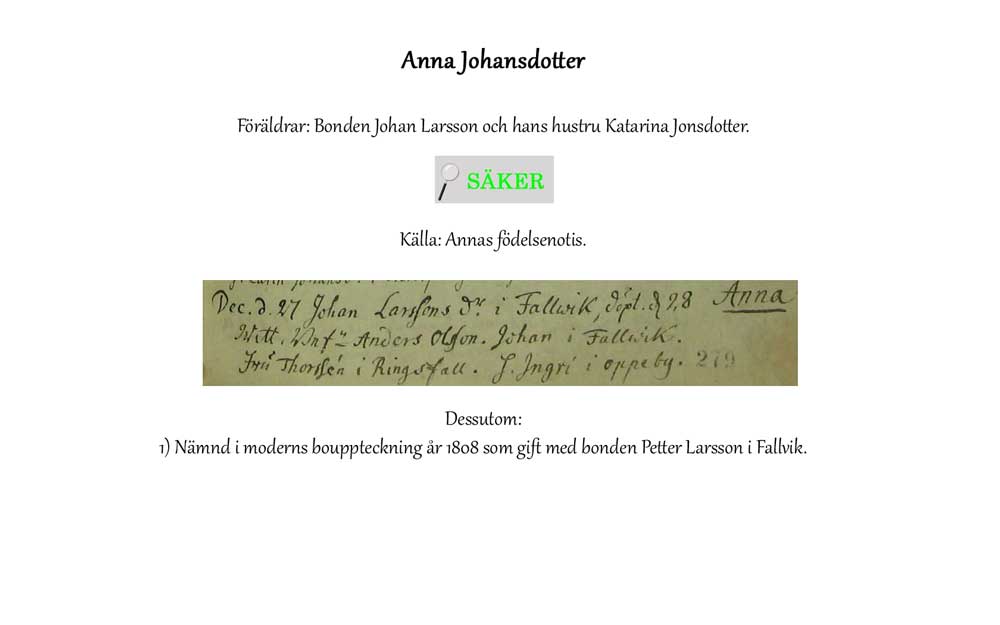 Anna Johansdotter
Föräldrar: Bonden Johan Larsson och hans hustru Katarina Jonsdotter.
SÄKER
Källa: Annas födelsenotis.
Dec. d. 27 Johan Larssons Dr. i Fallwik, döpt. d. 28 Anna
Witt. Anders Olsson. Johan i Fallwik.
Fru Thorsén i Ringsfall. J. Ingri i oppeby. 279
Dessutom:
1) Nämnd i moderns bouppteckning år 1808 som gift med bonden Petter Larsson i Fallvik.